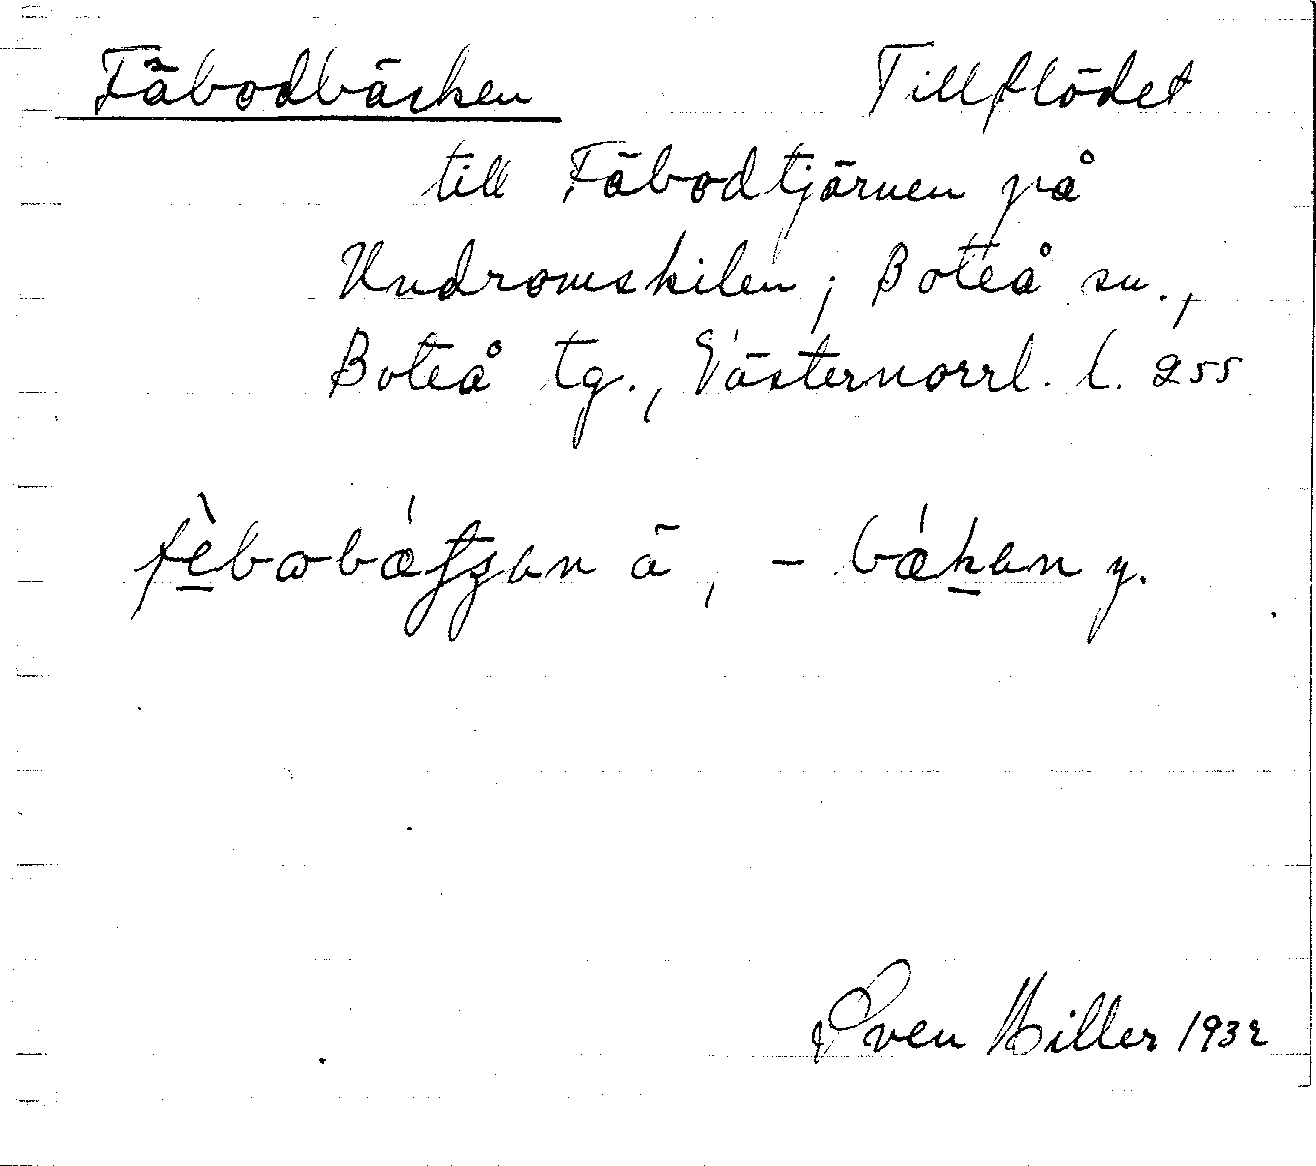 Fäbodbäcken Tillflödet
till Fäbodtjärnen på
Undromskilen; Boteå sn.,
Boteå tg., Västernorrl. l. 255
fèbωbǽtʃan ä, - bǽkan y.
Sven Hiller 1932